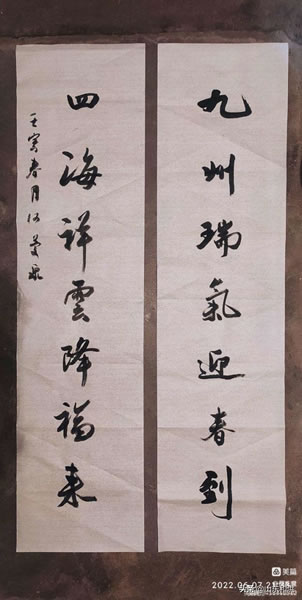 九州瑞氣迎春到
四海祥雲降福来
壬寅春月
美篇
2022.06.07 21